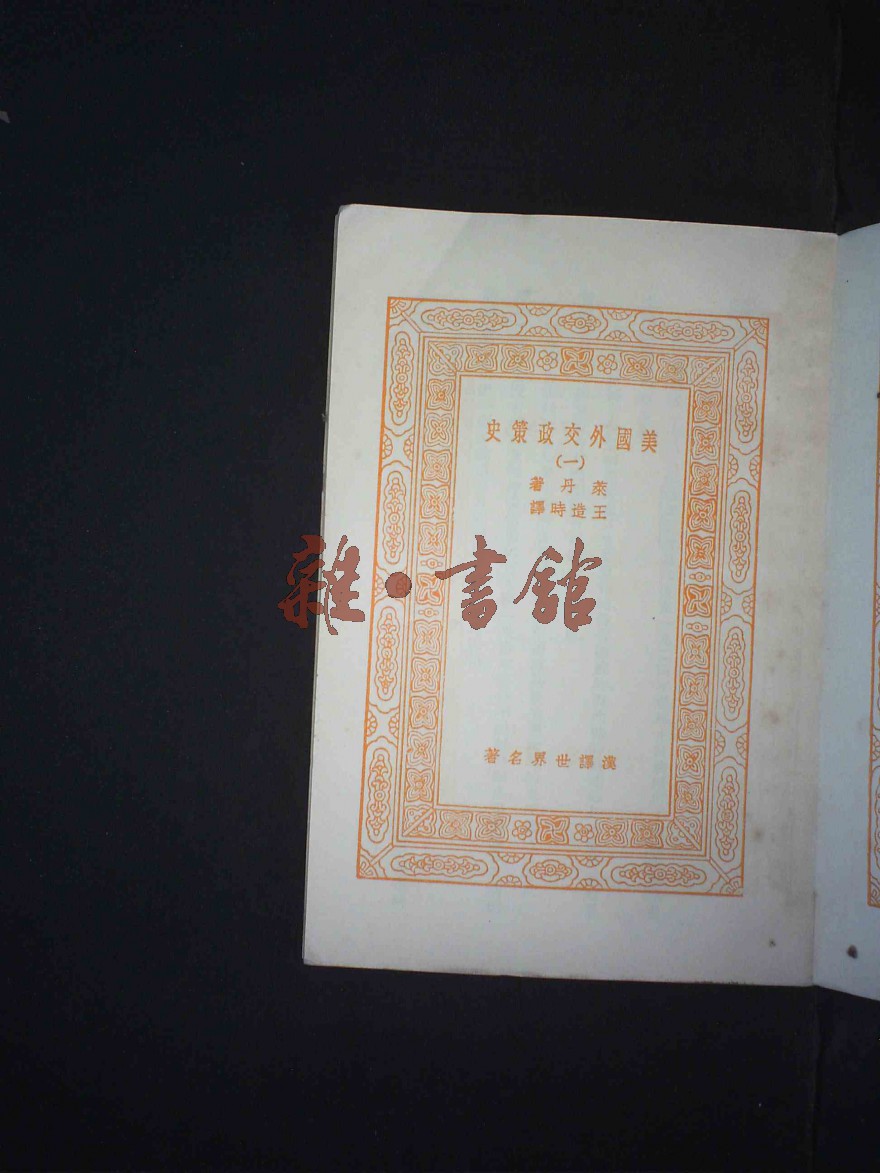 美國外交政策史
(一)
萊丹著
王造時譯
雜·書館
漢譯世界名著